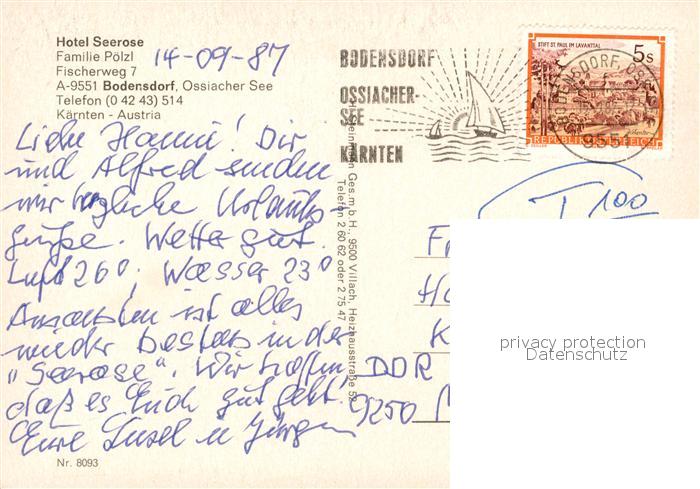 Hotel Seerose
Familie Pölzl
Fischerweg 7
A-9551 Bodensdorf, Ossiacher See
Telefon (0 42 43) 514
Kärnten - Austria
14-09-87
Liebe Hanni! Dir
und Alfred senden
wir herzliche Urlaubs-
grüße. Wetter gut.
Luft 26°, Wasser 23°
Ansonsten ist alles
wieder bestens in der
"Seerose". Wir hoffen
daß es Euch gut geht.
Eure Insel u Jürgen
Nr. 8093
Ges.m.b.H., 9500 Villach, Heizhausstraße 52
Telefon 2 60 62 oder 2 75 47
BODENSDORF
OSSIACHER-
SEE
KÄRNTEN
STIFT ST. PAUL IM LAVANTTAL
5s
REPUBLIK ÖSTERREICH
T 100
DDR
9250
privacy protection
Datenschutz